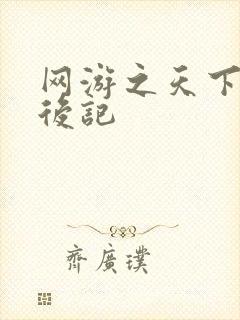 网游之天下
後記
齊廣璞